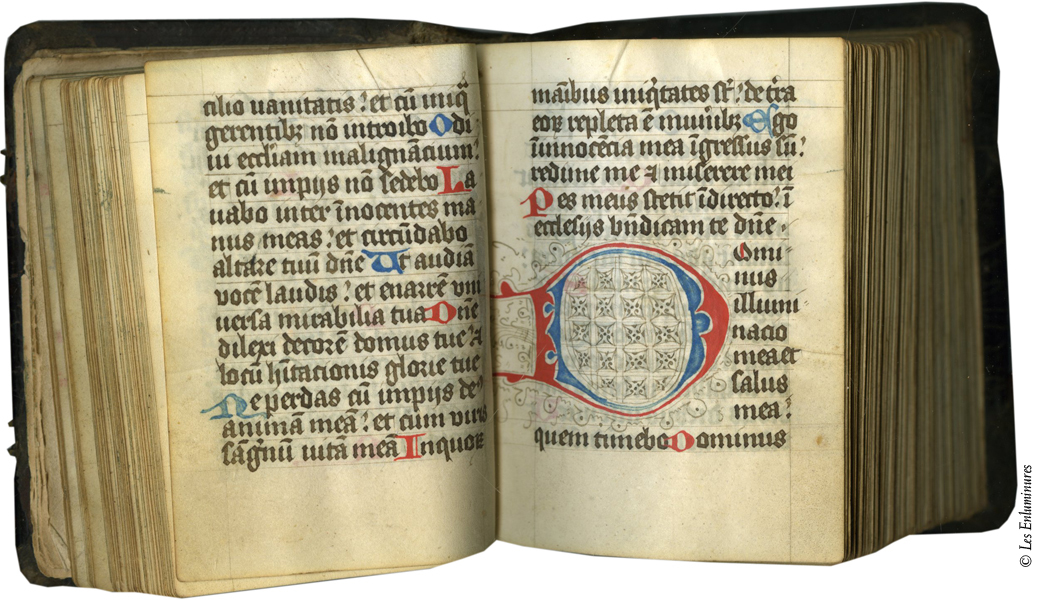 cilio uanitatis? et cū iniq̄
gerentibꝫ nō introibo Odi
iu eccliam malignācium?
et cū impijs nō sedebo La
uabo inter īnocentes ma
nus meas? et circūdabo
altare tuū dn̄e Ut audiā
vocē laudis? et enarrē vni
uersa mirabilia tua Dn̄e
dilexi decorē domus tue? ⁊
locū hītacionis glorie tue
Ne perdas cū impijs de?
animā meā? et cum viris
sāgnū uitā meā In quoꝝ
manibus iniq̄tates st̄? dext̄a
eoꝝ repleta ē munibꝫ Ego
ī innocēcia mea īgressus sū?
redime me ⁊ miserere mei
Pes meus stetit ī directo? ī
ecclesijs bn̄dicam te dn̄e
Domi
nus
illumi
nacio
mea et
salus
mea?
quem timebo Dominus
© Les Enluminures